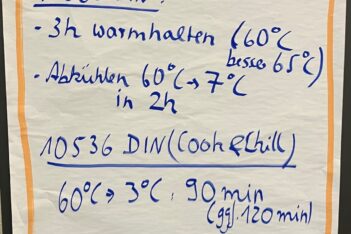 - 3h warmhalten (60°C
besser 65°C)
- Abkühlen 60°C → 7°C
in 2h
10536 DIN (Cook & Chill)
60°C → 3°C, 90 min
(ggf. 120 min)